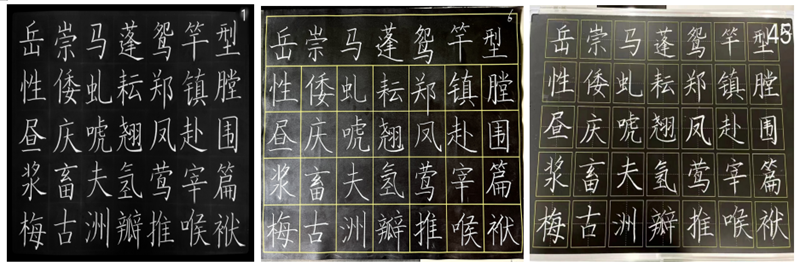 1
岳崇马蓬鸳竿型
性倭虬耘郑镇膛
昼庆唬翘凤赴围
浆畜夫氢莺宰篇
梅古洲瓣推喉袱
6
岳崇马蓬鸳竿型
性倭虬耘郑镇膛
昼庆唬翘凤赴围
浆畜夫氢莺宰篇
梅古洲瓣推喉袱
45
岳崇马蓬鸳竿型
性倭虬耘郑镇膛
昼庆唬翘凤赴围
浆畜夫氢莺宰篇
梅古洲瓣推喉袱